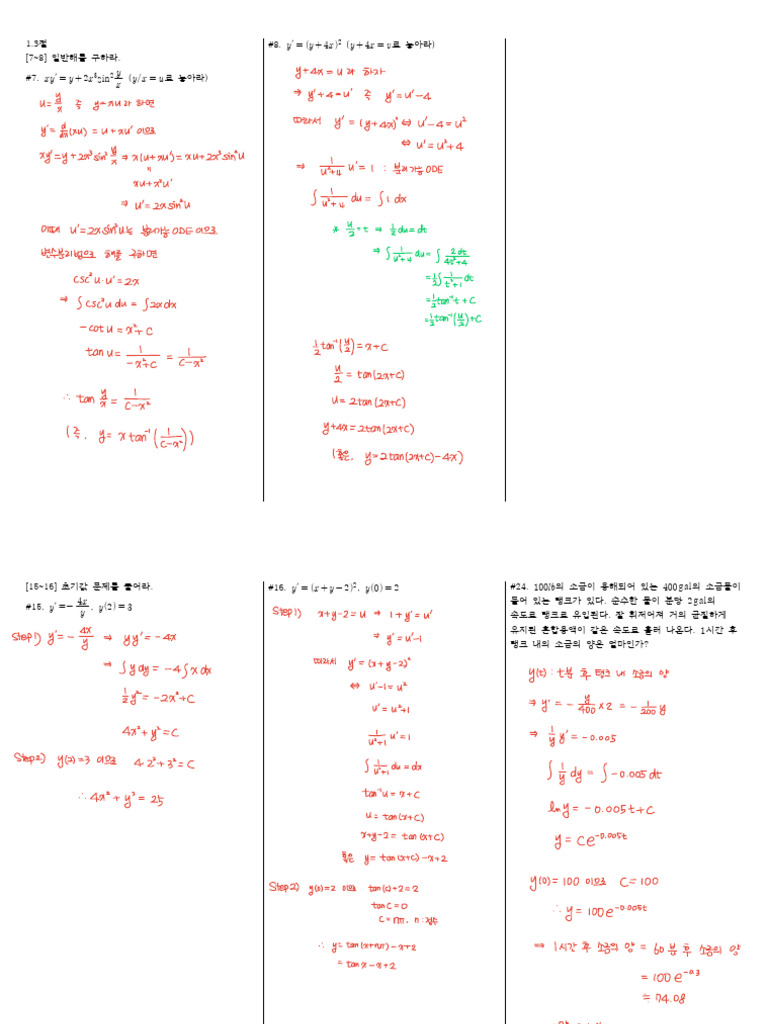 1.3절
[7~8] 일반해를 구하라.
#7. xy′ = y + 2x³sin²y/x (y/x = u로 놓아라)
u = y/x 즉 y = xu라 하면
y′ = d/dx(xu) = u + xu′ 이므로
xy′ = y + 2x³sin²y/x ⇒ x(u + xu′) = xu + 2x³sin²u
xu + x²u′
⇒ u′ = 2x sin²u
이때 u′ = 2x sin²u는 분리가능 ODE 이므로
변수분리법으로 해를 구하면
csc²u · u′ = 2x
⇒ ∫csc²u du = ∫2x dx
-cot u = x² + C
tan u = 1/(-x²+C) = 1/(C-x²)
∴ tan y/x = 1/(C-x²)
(즉, y = x tan⁻¹(1/(C-x²)))
#8. y′ = (y + 4x)² (y + 4x = v로 놓아라)
y + 4x = u 라 하자
⇒ y′ + 4 = u′ 즉 y′ = u′ - 4
따라서 y′ = (y + 4x)² ⇔ u′ - 4 = u²
⇔ u′ = u² + 4
⇒ 1/(u²+4) u′ = 1 : 분리가능 ODE
∫1/(u²+4) du = ∫1 dx
* u/2 = t ⇒ 1/2 du = dt
⇒ ∫1/(u²+4) du = ∫2dt/(4t²+4)
= 1/2∫1/(t²+1) dt
= 1/2 tan⁻¹t + C
= 1/2 tan⁻¹(u/2) + C
1/2 tan⁻¹(u/2) = x + C
u/2 = tan(2x + C)
u = 2tan(2x + C)
y + 4x = 2tan(2x + C)
(혹은, y = 2tan(2x + C) - 4x)
[15~16] 초기값 문제를 풀어라.
#15. y′ = -4x/y, y(2) = 3
Step1) y′ = -4x/y ⇒ yy′ = -4x
⇒ ∫y dy = -4∫x dx
1/2 y² = -2x² + C
4x² + y² = C
Step2) y(2) = 3 이므로 4·2² + 3² = C
∴ 4x² + y² = 25
#16. y′ = (x + y - 2)², y(0) = 2
Step1) x + y - 2 = u ⇒ 1 + y′ = u′
⇒ y′ = u′ - 1
따라서 y′ = (x + y - 2)²
⇔ u′ - 1 = u²
u′ = u² + 1
1/(u²+1) u′ = 1
∫1/(u²+1) du = dx
tan⁻¹u = x + C
u = tan(x + C)
x + y - 2 = tan(x + C)
혹은 y = tan(x + C) - x + 2
Step2) y(0) = 2 이므로 tan(c) + 2 = 2
tan C = 0
C = nπ, n : 정수
∴ y = tan(x + nπ) - x + 2
= tan x - x + 2
#24. 100lb의 소금이 용해되어 있는 400gal의 소금물이
들어 있는 탱크가 있다. 순수한 물이 분당 2gal의
속도로 탱크로 유입된다. 잘 휘저어져 거의 균질하게
유지된 혼합용액이 같은 속도로 흘러 나온다. 1시간 후
탱크 내의 소금의 양은 얼마인가?
y(t) : t분 후 탱크 내 소금의 양
⇒ y′ = -y/400 × 2 = -1/200 y
⇒ 1/y y′ = -0.005
∫1/y dy = ∫-0.005dt
ln y = -0.005t + C
y = Ce^(-0.005t)
y(0) = 100 이므로 C = 100
∴ y = 100e^(-0.005t)
⇒ 1시간 후 소금의 양 = 60분 후 소금의 양
= 100e^(-0.3)
≈ 74.08